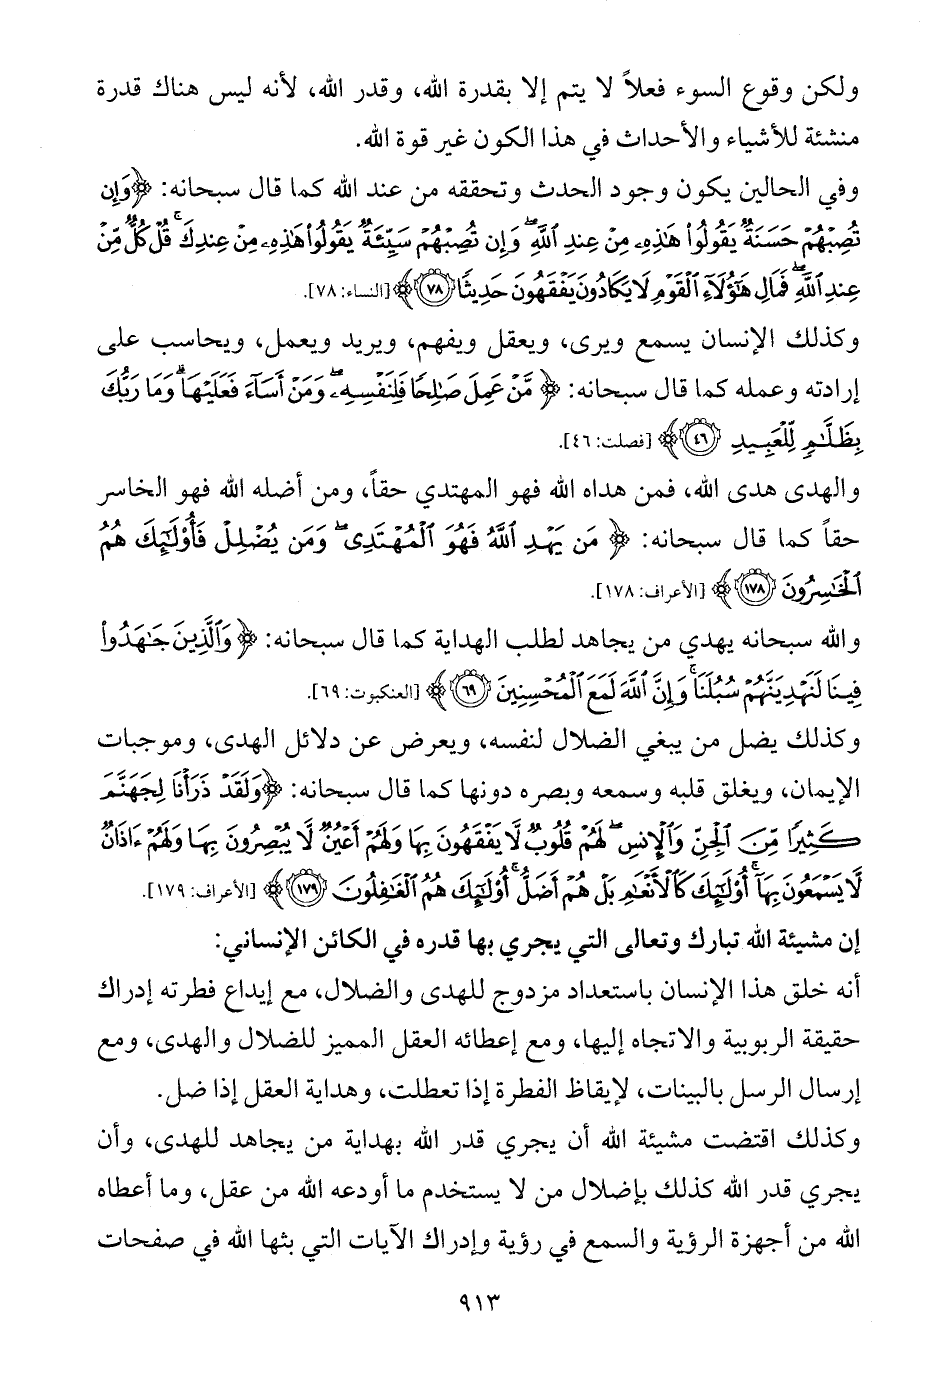 ولكن وقوع السوء فعلاً لا يتم إلا بقدرة الله، وقدر الله، لأنه ليس هناك قدرة
منشئة للأشياء والأحداث في هذا الكون غير قوة الله.
وفي الحالين يكون وجود الحدث وتحققه من عند الله كما قال سبحانه: ﴿وَإِن
تُصِبْهُمْ حَسَنَةٌ يَقُولُوا۟ هَٰذِهِۦ مِنْ عِندِ ٱللَّهِ ۖ وَإِن تُصِبْهُمْ سَيِّئَةٌ يَقُولُوا۟ هَٰذِهِۦ مِنْ عِندِكَ ۚ قُلْ كُلٌّ مِّنْ
عِندِ ٱللَّهِ ۖ فَمَالِ هَٰٓؤُلَآءِ ٱلْقَوْمِ لَا يَكَادُونَ يَفْقَهُونَ حَدِيثًا ٧٨﴾ [النساء: ٧٨].
وكذلك الإنسان يسمع ويرى، ويعقل ويفهم، ويريد ويعمل، ويحاسب على
إرادته وعمله كما قال سبحانه: ﴿مَّنْ عَمِلَ صَٰلِحًا فَلِنَفْسِهِۦ ۖ وَمَنْ أَسَآءَ فَعَلَيْهَا ۗ وَمَا رَبُّكَ
بِظَلَّٰمٍ لِّلْعَبِيدِ ٤٦﴾ [فصلت: ٤٦].
والهدى هدى الله، فمن هداه الله فهو المهتدي حقاً، ومن أضله الله فهو الخاسر
حقاً كما قال سبحانه: ﴿مَن يَهْدِ ٱللَّهُ فَهُوَ ٱلْمُهْتَدِى ۖ وَمَن يُضْلِلْ فَأُو۟لَٰٓئِكَ هُمُ
ٱلْخَٰسِرُونَ ١٧٨﴾ [الأعراف: ١٧٨].
والله سبحانه يهدي من يجاهد لطلب الهداية كما قال سبحانه: ﴿وَٱلَّذِينَ جَٰهَدُوا۟
فِينَا لَنَهْدِيَنَّهُمْ سُبُلَنَا ۚ وَإِنَّ ٱللَّهَ لَمَعَ ٱلْمُحْسِنِينَ ٦٩﴾ [العنكبوت: ٦٩].
وكذلك يضل من يبغي الضلال لنفسه، ويعرض عن دلائل الهدى، وموجبات
الإيمان، ويغلق قلبه وسمعه وبصره دونها كما قال سبحانه: ﴿وَلَقَدْ ذَرَأْنَا لِجَهَنَّمَ
كَثِيرًا مِّنَ ٱلْجِنِّ وَٱلْإِنسِ ۖ لَهُمْ قُلُوبٌ لَّا يَفْقَهُونَ بِهَا وَلَهُمْ أَعْيُنٌ لَّا يُبْصِرُونَ بِهَا وَلَهُمْ ءَاذَانٌ
لَّا يَسْمَعُونَ بِهَآ ۚ أُو۟لَٰٓئِكَ كَٱلْأَنْعَٰمِ بَلْ هُمْ أَضَلُّ ۚ أُو۟لَٰٓئِكَ هُمُ ٱلْغَٰفِلُونَ ١٧٩﴾ [الأعراف: ١٧٩].
إن مشيئة الله تبارك وتعالى التي يجري بها قدره في الكائن الإنساني:
أنه خلق هذا الإنسان باستعداد مزدوج للهدى والضلال، مع إيداع فطرته إدراك
حقيقة الربوبية والاتجاه إليها، ومع إعطائه العقل المميز للضلال والهدى، ومع
إرسال الرسل بالبينات، لإيقاظ الفطرة إذا تعطلت، وهداية العقل إذا ضل.
وكذلك اقتضت مشيئة الله أن يجري قدر الله بهداية من يجاهد للهدى، وأن
يجري قدر الله كذلك بإضلال من لا يستخدم ما أودعه الله من عقل، وما أعطاه
الله من أجهزة الرؤية والسمع في رؤية وإدراك الآيات التي بثها الله في صفحات
٩١٣